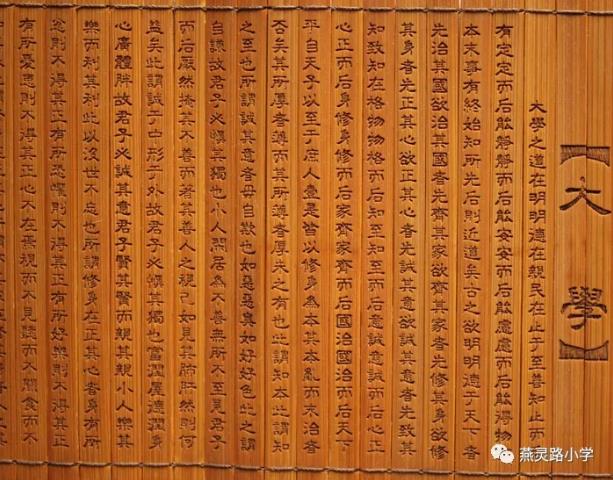 【大學】
大學之道在明明德在親民在止于至善知止而
有定定而后能靜靜而后能安安而后能慮慮而后能得物
本末事有終始知所先后則近道矣古之欲明明德于天下者
先治其國欲治其國者先齊其家欲齊其家者先修其身欲修
其身者先正其心欲正其心者先誠其意欲誠其意者先致其
知致知在格物物格而后知至知至而后意誠意誠而后心正
心正而后身修身修而后家齊家齊而后國治國治而后天下
平自天子以至于庶人壹是皆以修身為本其本亂而末治者
否矣其所厚者薄而其所薄者厚未之有也此謂知本此謂知
之至也所謂誠其意者毋自欺也如惡惡臭如好好色此之謂
自謙故君子必慎其獨也小人閒居為不善無所不至見君子
而后厭然掩其不善而著其善人之視己如見其肺肝然則何
益矣此謂誠于中形于外故君子必慎其獨也富潤屋德潤身
心廣體胖故君子必誠其意君子賢其賢而親其親小人樂其
樂而利其利此以沒世不忘也所謂修身在正其心者身有所
忿則不得其正有所恐懼則不得其正有所好樂則不得其正
有所憂患則不得其正心不在焉視而不見聽而不聞食而不
燕灵路小学